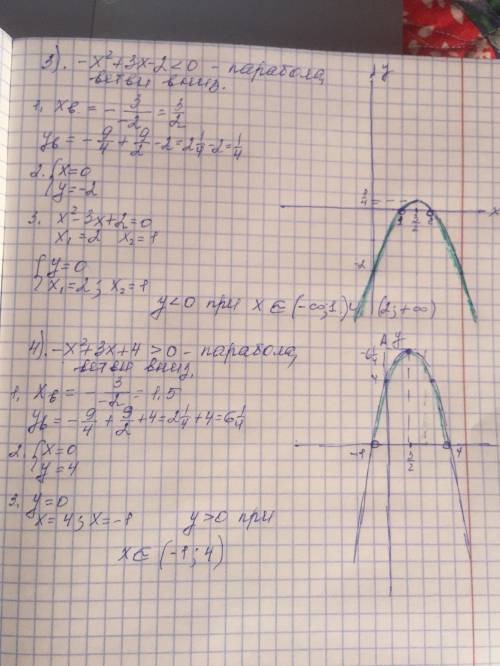 3). -x²+3x-2<0 - парабола,
ветви вниз.
1, xв = - 3/-2 = 3/2
yв = - 9/4 + 9/2 - 2 = 2 1/4 - 2 = 1/4
2. { x=0
y=-2
3. x²-3x+2=0
x₁=2 x₂=1
{ y=0
x₁=2; x₂=1
y<0 при x∈(-∞;1)∪(2;+∞)
y
x
1/4
1 3/2 2
-2
4). -x²+3x+4>0 - парабола,
ветви вниз,
1, xв = - 3/-2 = 1,5
yв = - 9/4 + 9/2 + 4 = 2 1/4 + 4 = 6 1/4
2. { x=0
y=4
3. y=0
x=4; x=-1
y>0 при
x∈(-1; 4)
y
6 1/4
4
-1 3/2 4